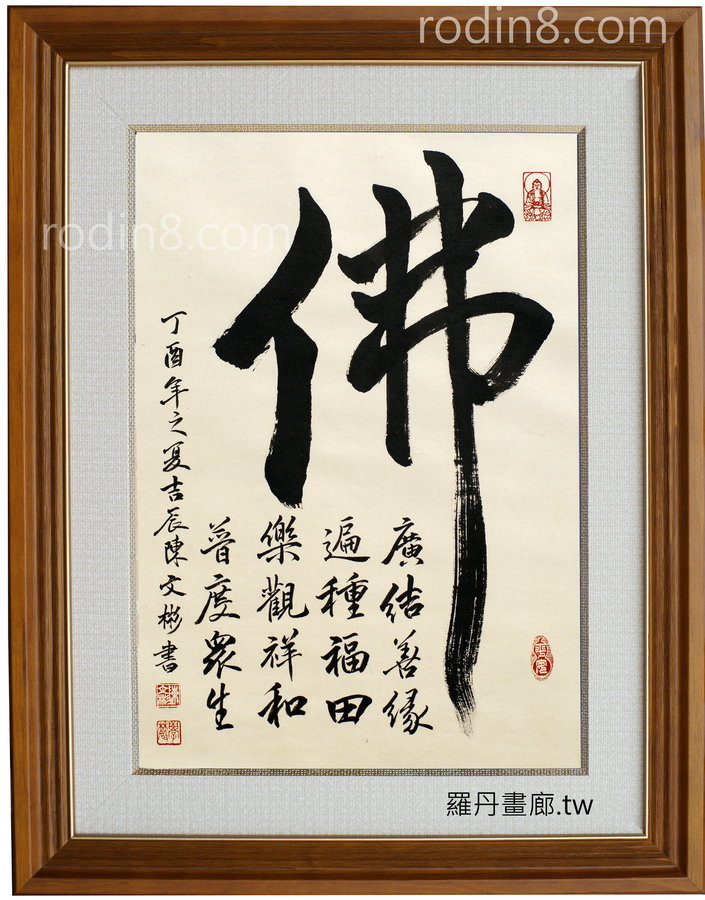 rodin8.com
rodin8.com
佛
廣結善緣
遍種福田
樂觀祥和
普度眾生
丁酉年之夏吉辰陳文彬書
羅丹畫廊.tw